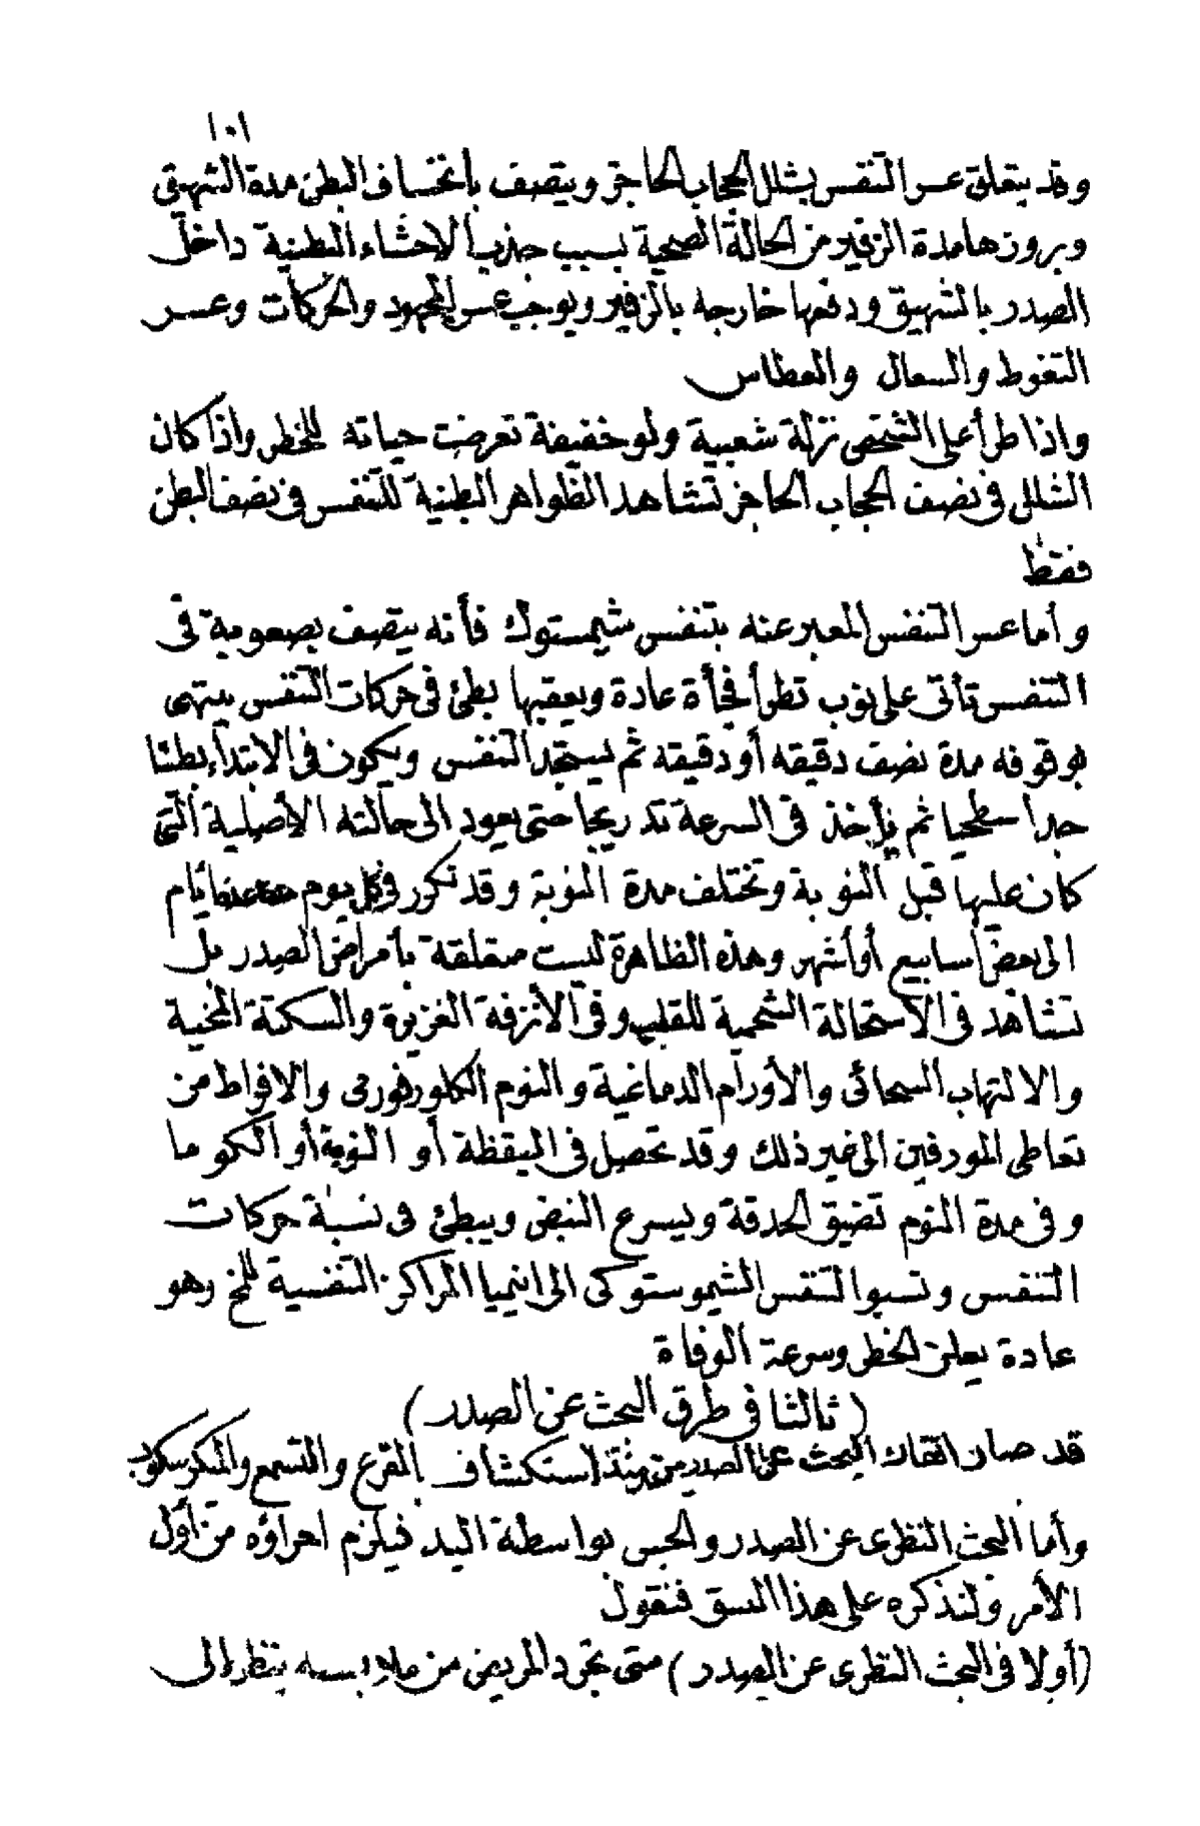 ١٠١
وقد يتعلق عسر التنفس بشلل الحجاب الحاجز ويتصف بانخساف البطن مدة الشهيق
وبروزها مدة الزفير من الحالة الصحية بسبب جذب الاحشاء البطنية داخل
الصدر بالشهيق ودفعها خارجه بالزفير ويوجب عسر المجهود والحركات وعسر
التغوط والسعال والعطاس
واذا طرأ على الشخص نزلة شعبية ولو خفيفة تعرضت حياته للخطر واذا كان
الشلل فى نصف الحجاب الحاجز تشاهد الظواهر البطنية للتنفس فى نصف البطن
فقط
وأما عسر التنفس المعبر عنه بتنفس شيمستوك فأنه يتصف بصعوبة فى
التنفس تأتى على نوب تطرأ فجأة عادة ويعقبها بطئ فى حركات التنفس ينتهى
بوقوفه مدة نصف دقيقه أو دقيقه ثم يستجد التنفس ويكون فى الابتداء بطئا
جدا سطحيا ثم يأخذ فى السرعة تدريجا حتى يعود الى حالته الأصلية التى
كان عليها قبل النوبة وتختلف مدة النوبة وقد تكرر فى كل يوم أيام
الى بعض أسابيع أو أشهر وهذه الظاهرة ليست متعلقة بأمراض الصدر بل
تشاهد فى الاستحالة الشحمية للقلب وفى الأنزفة الغزيرة والسكتة المخية
والالتهاب السحائى والأورام الدماغية والنوم الكلوروفورمى والافراط من
تعاطى المورفين الى غير ذلك وقد تحصل فى اليقظة أو النوبة أو الكوما
وفى مدة النوم تضيق الحدقة ويسرع النبض ويبطئ فى نسبة حركات
التنفس وتسبوا التنفس الشيموستوكى الى انيميا المراكز التنفسية للمخ وهو
عادة يعلن الخطر وسرعة الوفاة
(ثالثا فى طرق البحث عن الصدر)
قد صار اتقان البحث عن الصدر من منذ استكشاف القرع والتسمع والمكرسكوب
وأما البحث النظرى عن الصدر والجس بواسطة اليد فيلزم اجراؤه من أول
الأمر ولنذكره على هذا النسق فنقول
(أولا فى البحث النظرى عن الصدر) متى تجرد المريض من ملابسه ينظر الى